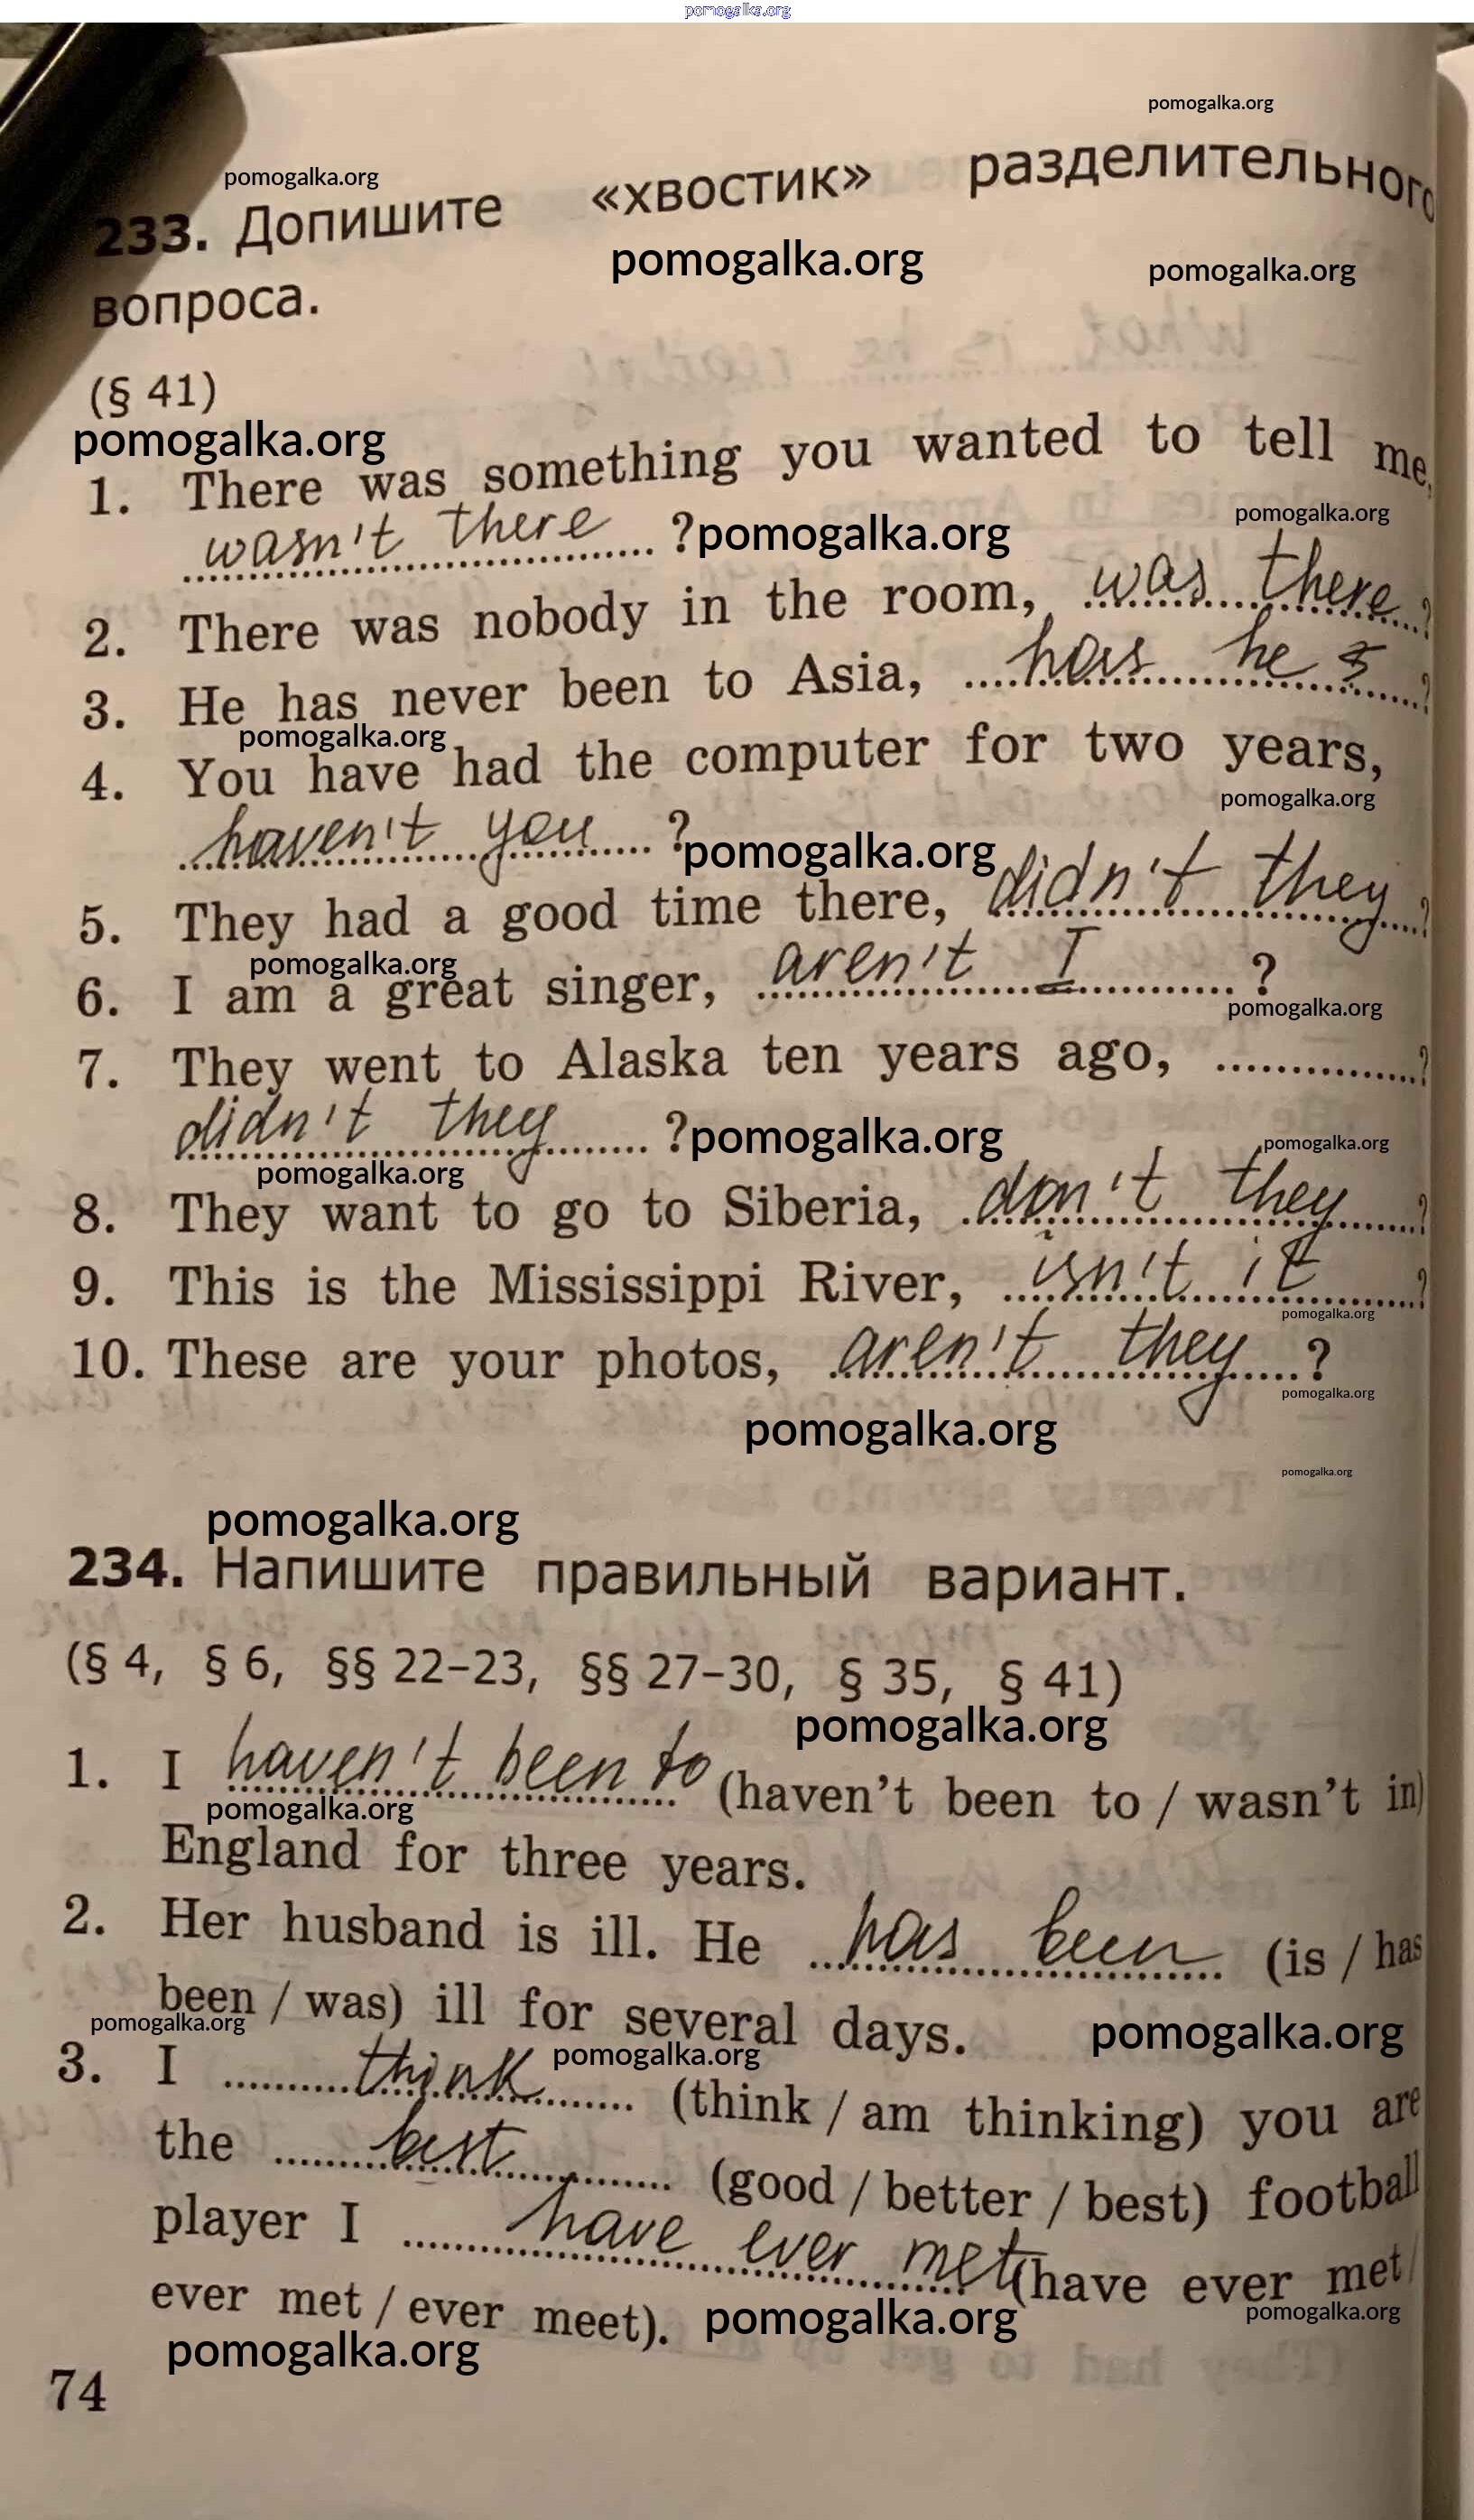 pomogalka.org
pomogalka.org
pomogalka.org
233. Допишите «хвостик» разделительного
pomogalka.org pomogalka.org
вопроса.
(§ 41)
pomogalka.org
1. There was something you wanted to tell me,
pomogalka.org
wasn't there ? pomogalka.org
2. There was nobody in the room, was there ?
3. He has never been to Asia, has he ?
pomogalka.org
4. You have had the computer for two years,
pomogalka.org
haven't you ? pomogalka.org
5. They had a good time there, didn't they ?
pomogalka.org
6. I am a great singer, aren't I ?
pomogalka.org
7. They went to Alaska ten years ago, ?
didn't they ? pomogalka.org pomogalka.org
pomogalka.org
8. They want to go to Siberia, don't they ?
9. This is the Mississippi River, isn't it ?
pomogalka.org
10. These are your photos, aren't they ?
pomogalka.org
pomogalka.org
pomogalka.org
pomogalka.org
234. Напишите правильный вариант.
(§ 4, § 6, §§ 22–23, §§ 27–30, § 35, § 41)
pomogalka.org
1. I haven't been to (haven't been to / wasn't in)
pomogalka.org
England for three years.
2. Her husband is ill. He has been (is / has
been / was) ill for several days.
pomogalka.org pomogalka.org
pomogalka.org
3. I think (think / am thinking) you are
the best (good / better / best) football
player I have ever met (have ever met /
ever met / ever meet). pomogalka.org pomogalka.org
pomogalka.org
74